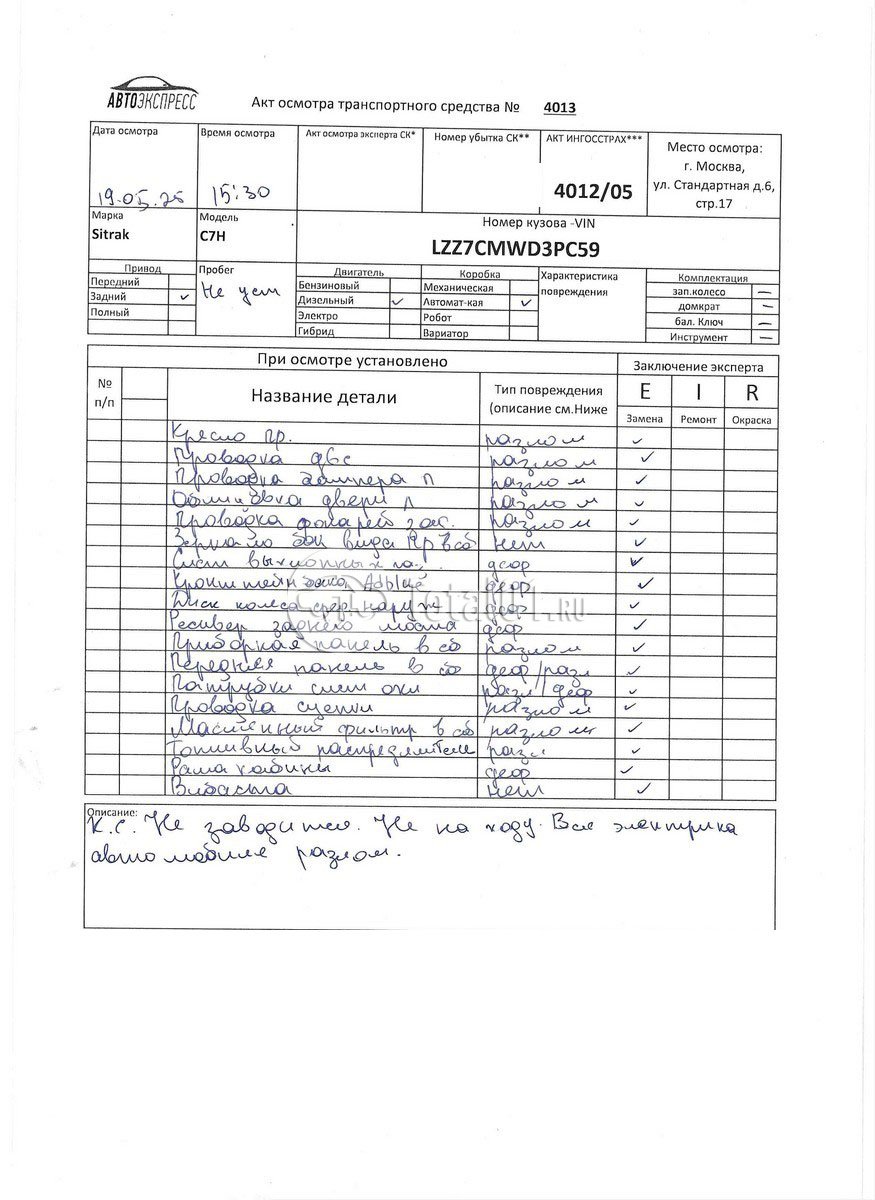 АВТОЭКСПРЕСС
Акт осмотра транспортного средства № 4013
Дата осмотра
Время осмотра
Акт осмотра эксперта СК*
Номер убытка СК**
АКТ ИНГОССТРАХ***
Место осмотра:
г. Москва,
ул. Стандартная д.6,
стр.17
19.05.25
15:30
4012/05
Марка
Модель
Номер кузова -VIN
Sitrak
C7H
LZZ7CMWD3PC59
Привод
Пробег
Двигатель
Коробка
Характеристика
повреждения
Комплектация
Передний
Не уст
Бензиновый
Механическая
зап.колесо —
Задний ✓
Дизельный ✓
Автомат-кая ✓
домкрат —
Полный
Электро
Робот
бал. Ключ —
Гибрид
Вариатор
Инструмент —
При осмотре установлено
Заключение эксперта
№
п/п
Название детали
Тип повреждения
(описание см.Ниже
E I R
Замена Ремонт Окраска
Кресло пр. разлом ✓
Проводка двс разлом ✓
Проводка бампера п разлом ✓
Обшивка двери л разлом ✓
Проводка фонарей зас. разлом ✓
Зеркало вида пр в сб нет ✓
Сист выхлопных деор ✓
Кронштейн бака Adblue деор ✓
Диск колеса наруж деф ✓
Ресивер заднего моста деф ✓
Приборная панель в сб разлом ✓
Передняя панель в сб деф/разл ✓
Патрубки сист охл разл/деф ✓
Проводка сцепки разлом ✓
Масляный фильтр в сб разлом ✓
Топливный распределителе разл ✓
Рама кабины деор ✓
Вебаста нет ✓
Total01.RU
Описание:
К.С. Не заводится. Не на ходу. Вся электрика
автомобиля разлом.